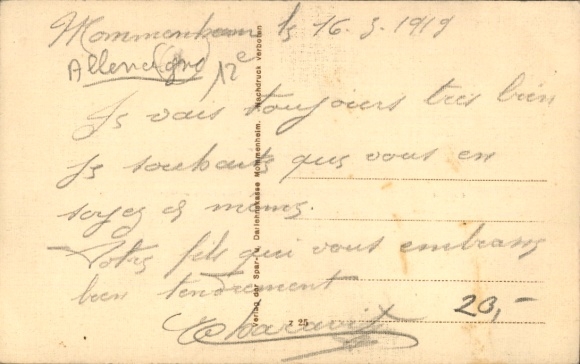 Mommenheim le 16-3-1919
Allemagne
12e
Je vais toujours tres bien
Je souhaite que vous en
soyez de meme.
Votre fils qui vous embrasse
bien tendrement
20,-
Verlag der Spar- u. Darlehnskasse Mommenheim. Nachdruck verboten
Z 25